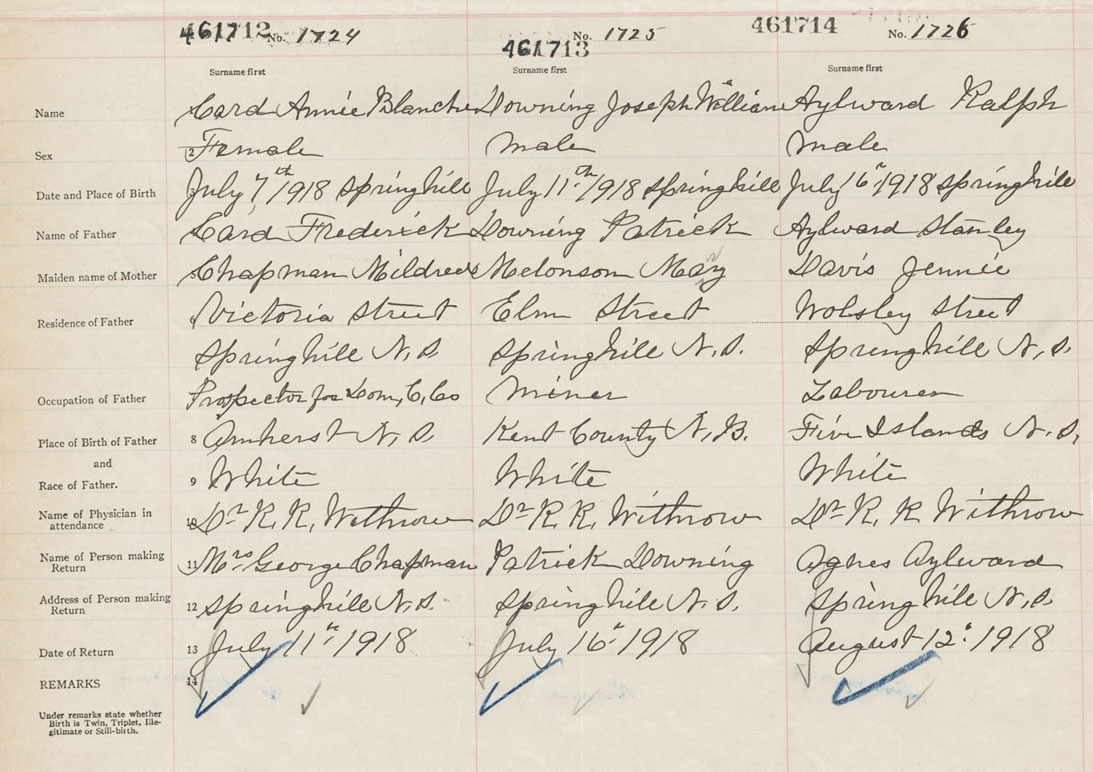 461712 No. 1724
461713 No. 1725
461714 No. 1726
Surname first Surname first Surname first
Name Card Annie Blanche Downing Joseph William Aylward Ralph
Sex 2 Female male male
Date and Place of Birth 3 July 7th/1918 Springhill July 11th/1918 Springhill July 16"/1918 Springhill
Name of Father Card Frederick Downing Patrick Aylward Stanley
Maiden name of Mother 5 Chapman Mildred Melonson May Davis Jennie
Residence of Father 6 Victoria Street Elm Street Wolsley Street
Springhill N.S. Springhill N.S. Springhill N.S.
Occupation of Father Prospector for Dom, C, Co Miner Labourer
Place of Birth of Father 8 Amherst N.S. Kent County N.B. Five Islands N.S.
and
Race of Father. 9 White White White
Name of Physician in
attendance 10 Dr R. R. Withrow Dr R. R. Withrow Dr R. R. Withrow
Name of Person making
Return 11 Mrs George Chapman Patrick Downing Agnes Aylward
Address of Person making
Return 12 Springhill N.S. Springhill N.S. Springhill N.S.
Date of Return 13 July 11" 1918 July 16" 1918 August 12" 1918
REMARKS 14
Under remarks state whether
Birth is Twin, Triplet, Ille-
gitimate or Still-birth.